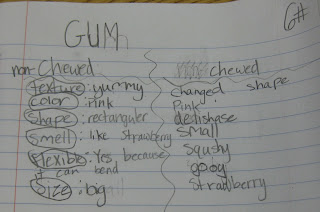 G#
GUM
non-Chewed
texture: yummy
color: Pink
Shape: rectanguler
Smell: like strawberry
flexible: Yes, because
it can bend
Size: big
chewed
changed shape
Pink
dedishase
Small
Squshy
gooy
Strawberry